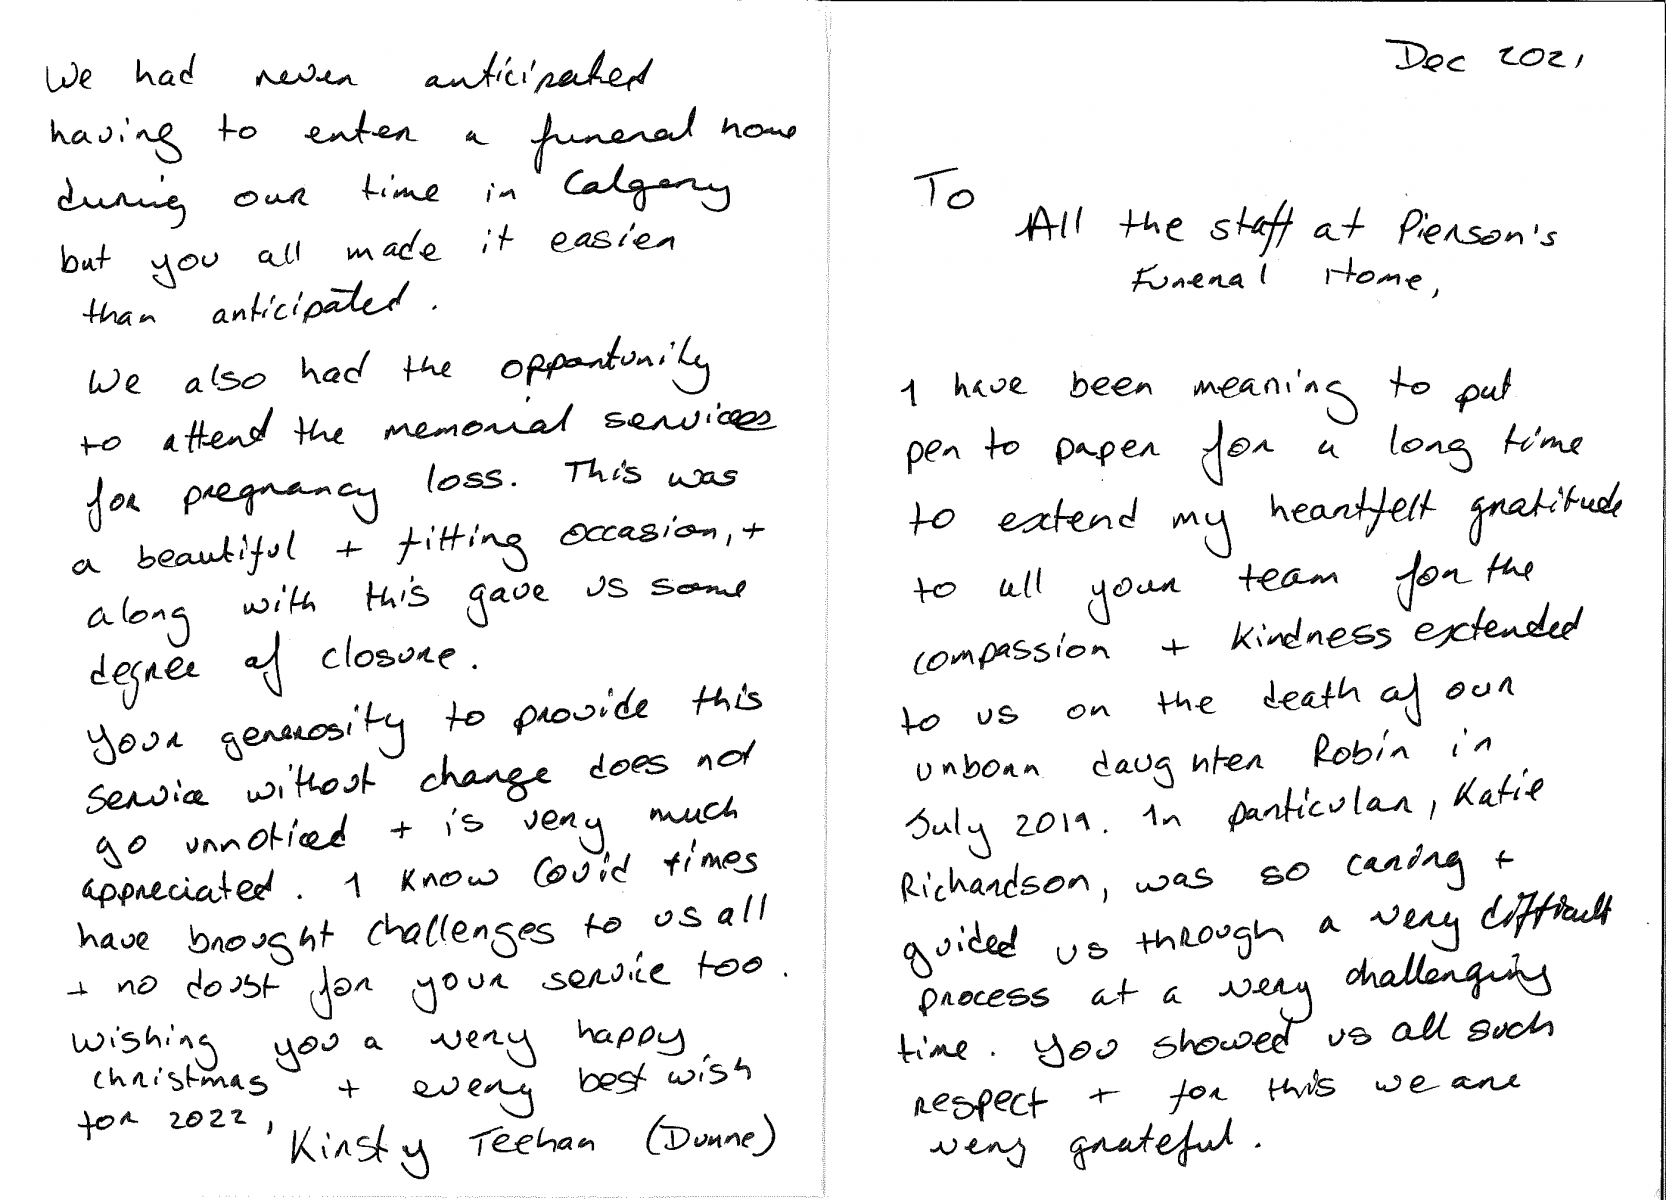 Dec 2021
To
All the staff at Pierson's
Funeral Home,
I have been meaning to put
pen to paper for a long time
to extend my heartfelt gratitude
to all your team for the
compassion + kindness extended
to us on the death of our
unborn daughter Robin in
July 2019. In particular, Katie
Richardson, was so caring +
guided us through a very difficult
process at a very challenging
time. You showed us all such
respect + for this we are
very grateful.
We had never anticipated
having to enter a funeral home
during our time in Calgary
but you all made it easier
than anticipated.
We also had the opportunity
to attend the memorial services
for pregnancy loss. This was
a beautiful + fitting occasion, +
along with this gave us some
degree of closure.
Your generosity to provide this
service without change does not
go unnoticed + is very much
appreciated. I know Covid times
have brought challenges to us all
+ no doubt for your service too.
Wishing you a very happy
christmas + every best wish
for 2022,
Kirsty Teehan (Dunne)